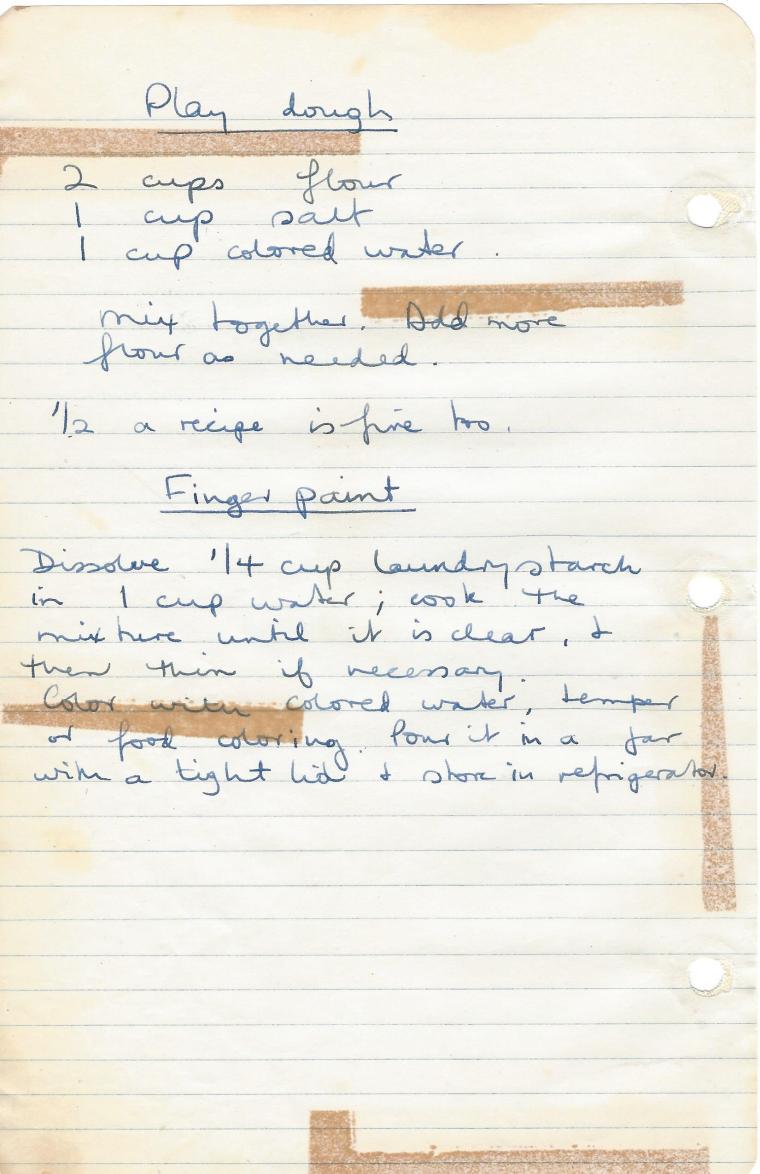 Play dough
2 cups flour
1 cup salt
1 cup colored water.
mix together. Add more
flour as needed.
1/2 a recipe is fine too.
Finger paint
Dissolve 1/4 cup laundry starch
in 1 cup water; cook the
mixture until it is clear, &
then thin if necessary.
Color with colored water, temper
or food coloring. Pour it in a jar
with a tight lid & store in refrigerator.